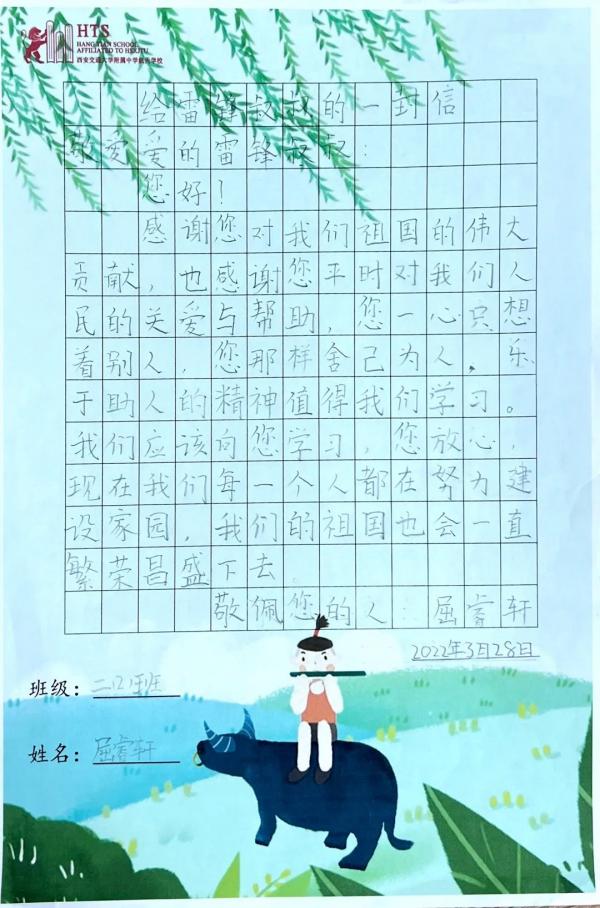 HTS
HANG TIAN SCHOOL
AFFILIATED TO HSXJTU
西安交通大学附属中学航天学校
给雷锋叔叔的一封信
敬爱爱的雷锋叔叔：
您好！
感谢您对我们祖国的伟大
贡献，也感谢您平时对我们人
民的关爱与帮助，您一心只想
着别人，您那样舍己为人，乐
于助人的精神值得我们学习。
我们应该向您学习，您放心，
现在我们每一个人都在努力建
设家园，我们的祖国也会一直
繁荣昌盛下去
敬佩您的人：屈睿轩
2022年3月28日
班级：二(2)班
姓名：屈睿轩